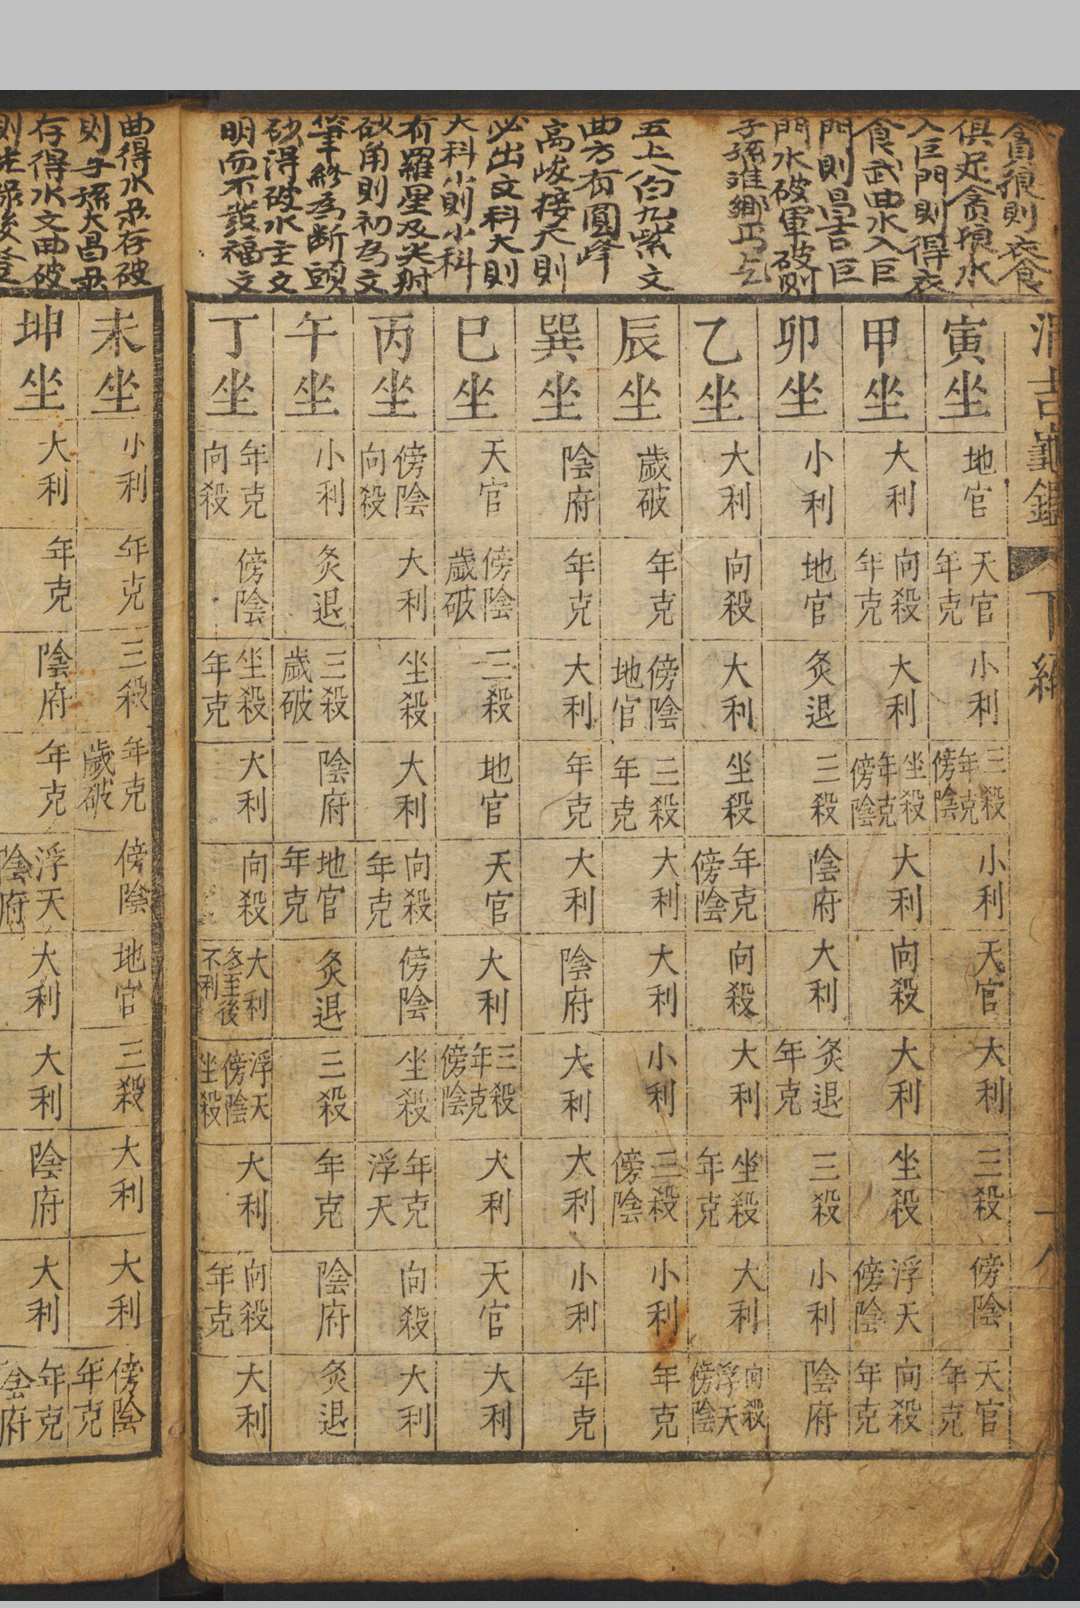 貪狼則衣食
俱足貪狼水
入巨門則得衣
食武曲水入巨
門則昌吉巨
門水破軍破則
子孫離鄉丐乞
五上八白九紫文
曲方有圓峰
高峻接天則
必出文科大則
大科小則小科
有羅星及尖射
砂角則初為文
筆終為斷頭
砂得破水主文
明而不發福文
曲得水祿存破
則子孫大昌祿
存得水文曲破
涓吉龜鑑 下編
寅坐 地官 天官年克 小利 三殺年克傍陰 小利 天官 大利 三殺 傍陰 天官年克
甲坐 大利 向殺年克 大利 坐殺年克傍陰 大利 向殺 大利 坐殺 浮天傍陰 向殺年克
卯坐 小利 地官 灸退 三殺 陰府 大利 灸退年克 三殺 小利 陰府
乙坐 大利 向殺 大利 坐殺 年克傍陰 向殺 大利 坐殺年克 大利 向殺浮天傍陰
辰坐 歲破 年克 傍陰地官 三殺年克 大利 大利 小利 三殺傍陰 小利 年克
巽坐 陰府 年克 大利 年克 大利 陰府 大利 大利 小利 年克
巳坐 天官 傍陰歲破 三殺 地官 天官 大利 三殺年克傍陰 大利 天官 大利
丙坐 傍陰向殺 大利 坐殺 大利 向殺年克 傍陰 坐殺 年克浮天 向殺 大利
午坐 小利 灸退 三殺歲破 陰府 地官年克 灸退 三殺 年克 陰府 灸退
丁坐 年克向殺 傍陰 坐殺年克 大利 向殺 大利冬至後不利 浮天傍陰坐殺 大利 向殺年克 大利
未坐 小利 年克 三殺 年克歲破 傍陰 地官 三殺 大利 大利 傍陰年克
坤坐 大利 年克 陰府 年克 浮天陰府 大利 大利 陰府 大利 年克陰府